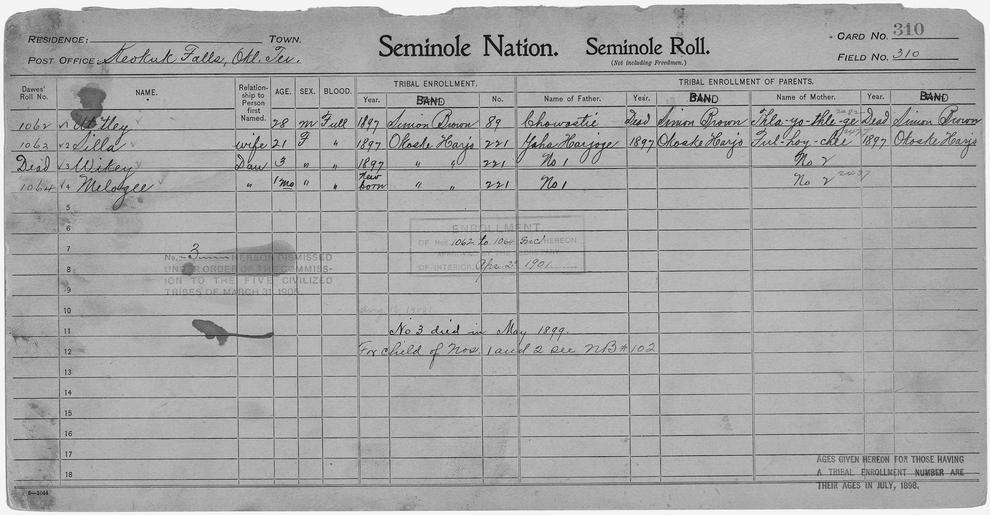 RESIDENCE: TOWN.
POST OFFICE: Keokuk Falls, Okl. Ter.
Seminole Nation. Seminole Roll.
(Not including Freedmen.)
CARD NO. 310
FIELD NO. 310
Dawes' Roll No. NAME. Relationship to Person first Named. AGE. SEX. BLOOD. TRIBAL ENROLLMENT. TRIBAL ENROLLMENT OF PARENTS.
Year. BAND No. Name of Father. Year. BAND Name of Mother. Year. BAND
1062 1 28 M Full 1897 Simion Brown 89 Chowastie Dead Simion Brown Dead Simion Brown
1063 2 Silla wife 21 F " 1897 Okoske Harjo 221 1897 Okoske Harjo Ful-hoy-chee 1897 Okoske Harjo
Dead 3 Wikey Dau 3 " " 1897 " " 221 No 1 No 2
1064 4 Melogee " 1 mo " " New born " " 221 No 1 No 2
5
6
ENROLLMENT
OF NOS. 1062 to 1064 HEREON
OF INTERIOR Apr. 2, 1901.
7
8
No. 3 HEREON DISMISSED
UNDER ORDER OF THE COMMISSION TO THE FIVE CIVILIZED
TRIBES OF MARCH 31, 1905.
9
10
11 No 3 died in May 1899.
12 For child of Nos. 1 and 2 see NB # 102
13
14
15
16
17
18
AGES GIVEN HEREON FOR THOSE HAVING
A TRIBAL ENROLLMENT NUMBER ARE
THEIR AGES IN JULY, 1898.